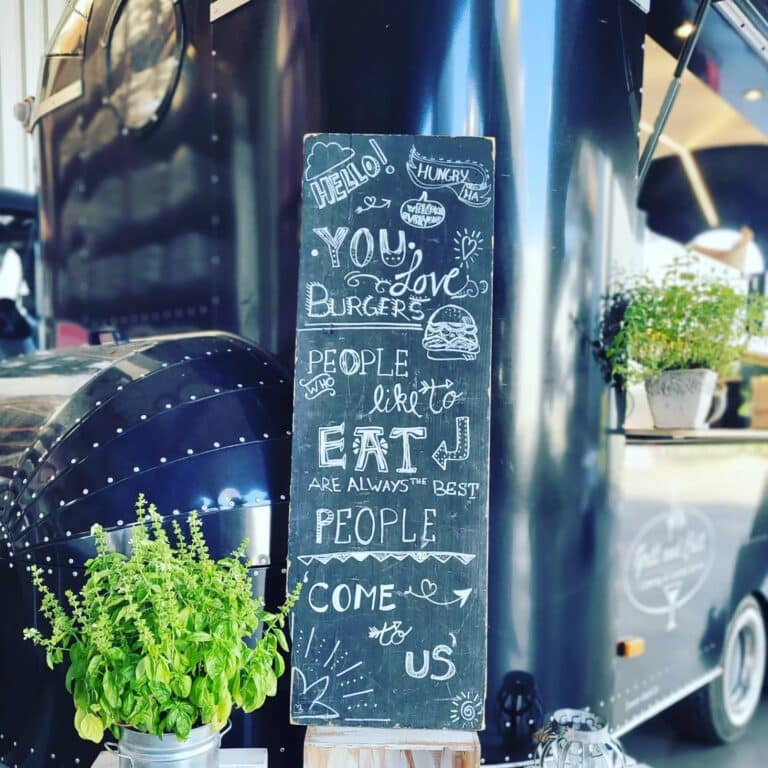 HELLO!
HUNGRY
HA
WELCOME
EVERYONE
YOU
Love
BURGERS
PEOPLE
WHO
like to
EAT
ARE ALWAYS THE BEST
PEOPLE
COME
to
US
Grill and Chill